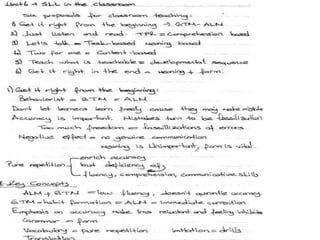 Unit 6 → SLL in the classroom
Six proposals for classroom teaching:
1) Get it right from the beginning → GTM - ALM
2) Just listen and read. TPR = Comprehension based
3) Let's talk = Task-based meaning based
4) Two for one = Content-based
5) Teach what is teachable = developmental sequence
6) Get it right in the end = meaning + form.
1) Get it right from the beginning:
Behaviorist = GTM = ALM
Don't let learners learn freely cause they may make mistakes
Accuracy is important. Mistakes turn to be fossilization
Too much freedom = fossilizations of errors.
Negative effect = no genuine communication
meaning is unimportant, form is vital.
enrich accuracy
Pure repetition but deficiency of
fluency, comprehension, communicative skills
Key Concepts
ALM + GTM = low fluency, doesn't guarantee accuracy
GTM = habit formation = ALM = immediate correction
Emphasis on accuracy make lrns reluctant and feeling inhibited
Grammar = form
Vocabulary = pure repetition imitation = drills
Translation